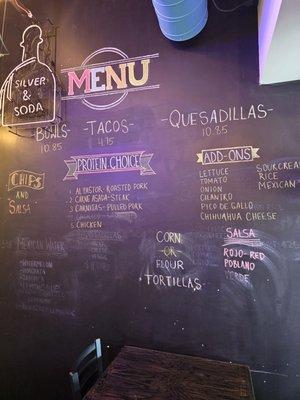 MENU
SILVER
& SODA
BOWLS-
10.85
-TACOS-
4.75
-QUESADILLAS-
10.85
PROTEIN CHOICE
1. AL PASTOR- ROASTED PORK
2. CARNE ASADA- STEAK
3. CARNITAS- PULLED PORK
5. CHICKEN
ADD-ONS
LETTUCE
TOMATO
ONION
CILANTRO
PICO DE GALLO
CHIHUAHUA CHEESE
SOUR CREAM
RICE
MEXICAN
CHIPS
AND
SALSA
CORN
-OR-
FLOUR
-TORTILLAS-
SALSA
ROJO-RED
POBLANO
VERDE
MEXICAN WATER
-WATERMELON
-HORCHATA